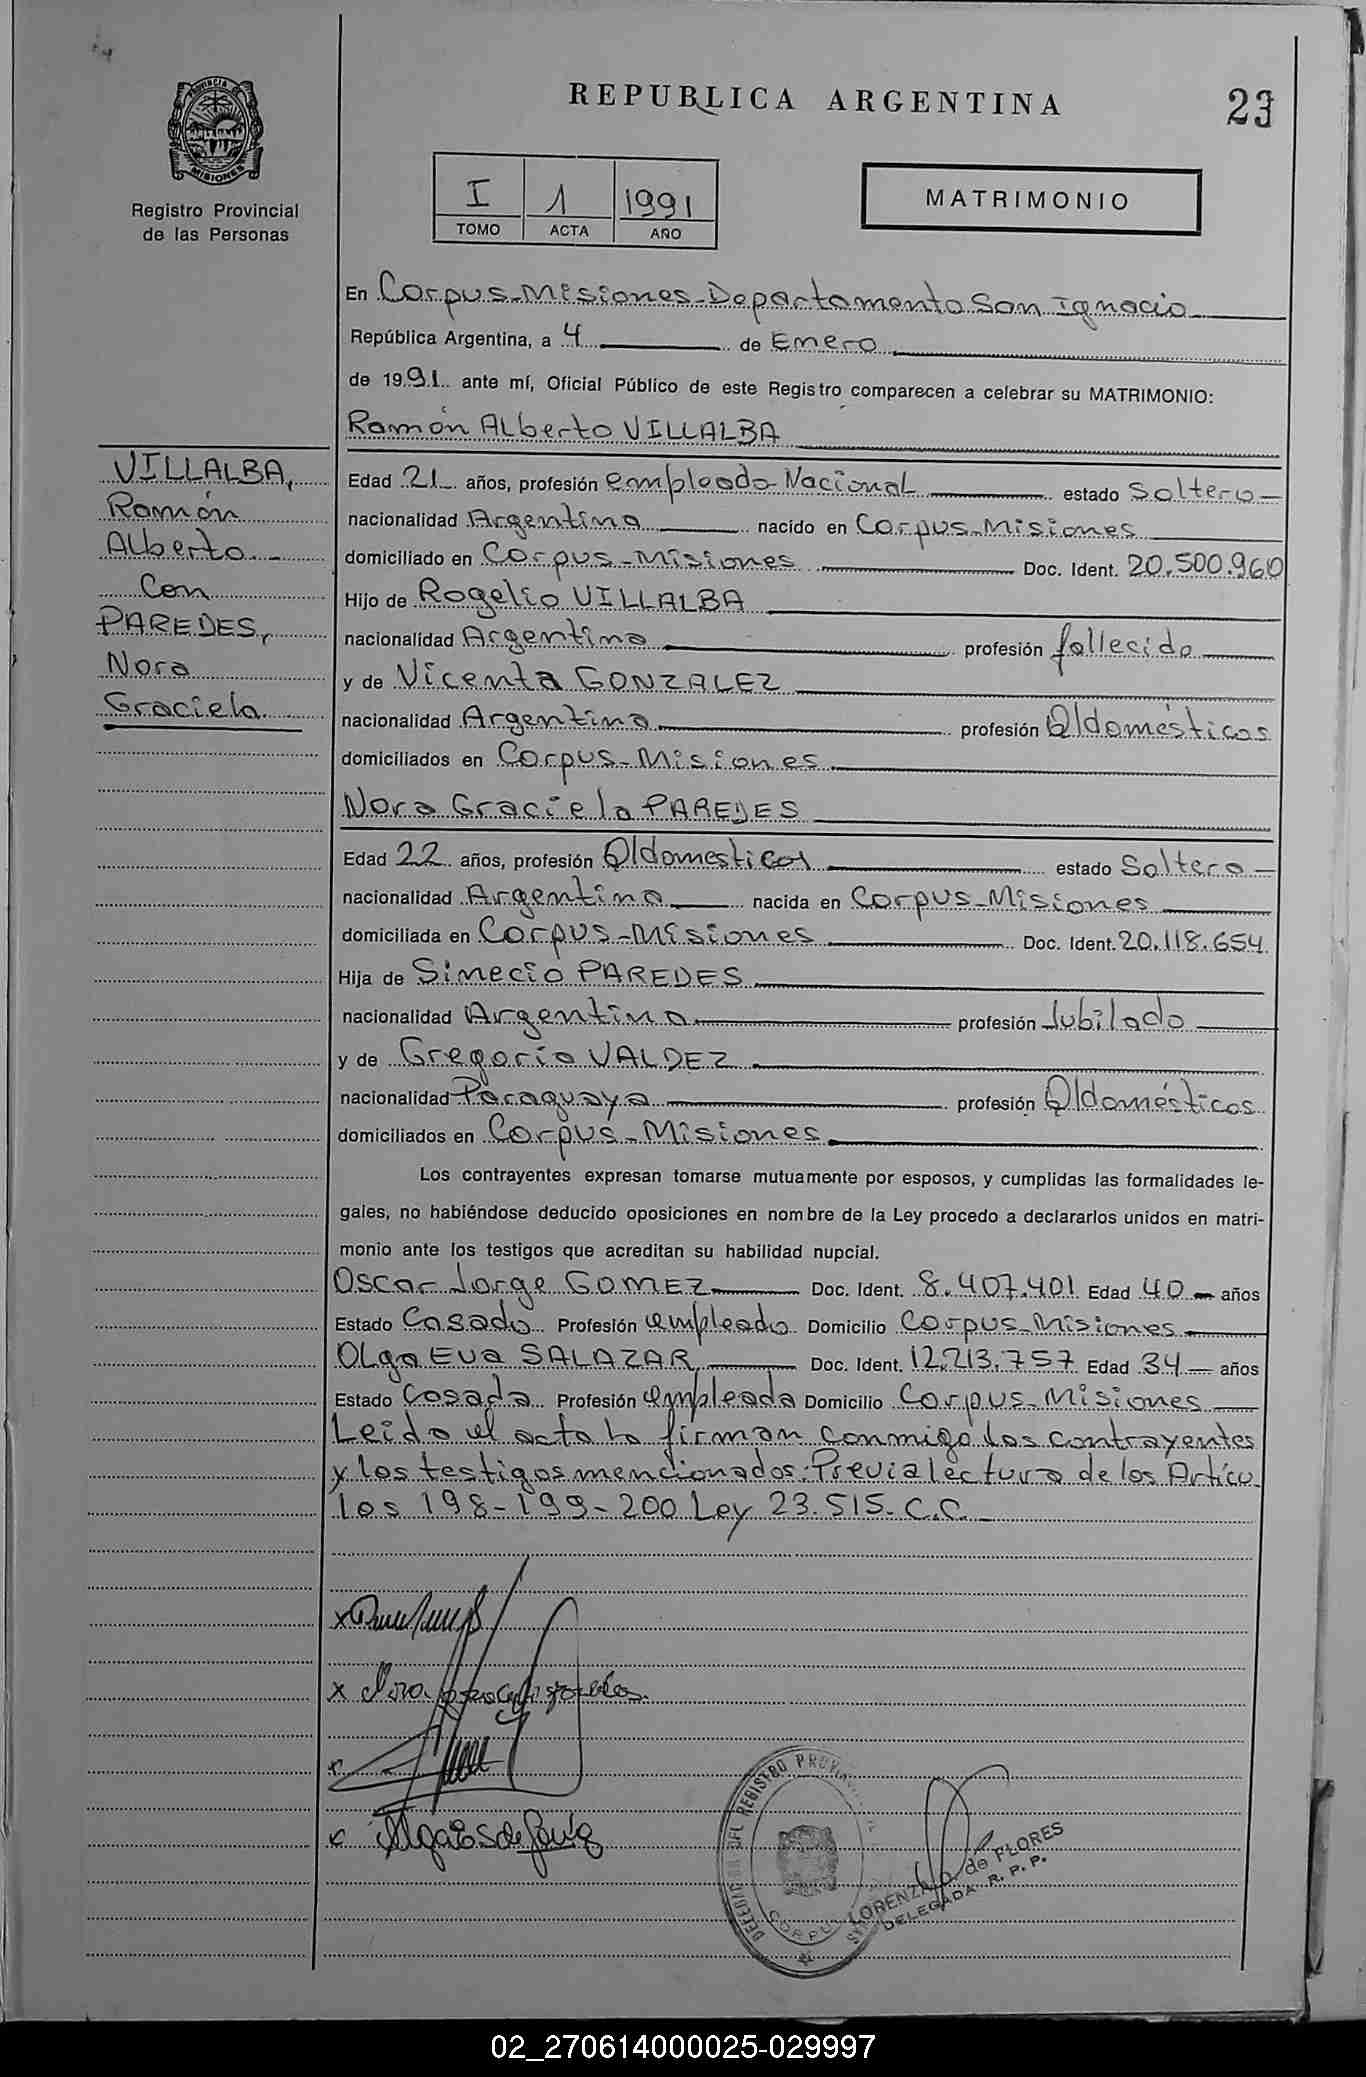 REPUBLICA ARGENTINA
23
PROVINCIA DE
MISIONES
Registro Provincial
de las Personas
I 1 1991
TOMO ACTA AÑO
MATRIMONIO
En Corpus-Misiones-Departamento San Ignacio
República Argentina, a 4 de Enero
de 1991 ante mí, Oficial Público de este Registro comparecen a celebrar su MATRIMONIO:
Ramón Alberto VILLALBA
VILLALBA,
Ramón
Alberto
Con
PAREDES,
Nora
Graciela
Edad 21 años, profesión empleado Nacional estado Soltero
nacionalidad Argentina nacido en Corpus-Misiones
domiciliado en Corpus-Misiones Doc. Ident. 20.500.960
Hijo de Rogelio VILLALBA
nacionalidad Argentina profesión fallecido
y de Vicenta GONZALEZ
nacionalidad Argentina profesión Q/domésticos
domiciliados en Corpus-Misiones
Nora Graciela PAREDES
Edad 22 años, profesión Q/domesticos estado Soltera
nacionalidad Argentina nacida en Corpus-Misiones
domiciliada en Corpus-Misiones Doc. Ident. 20.118.654
Hija de Simecio PAREDES
nacionalidad Argentina profesión Jubilado
y de Gregoria VALDEZ
nacionalidad Paraguaya profesión Q/domésticos
domiciliados en Corpus-Misiones
Los contrayentes expresan tomarse mutuamente por esposos, y cumplidas las formalidades le-
gales, no habiéndose deducido oposiciones en nombre de la Ley procedo a declararlos unidos en matri-
monio ante los testigos que acreditan su habilidad nupcial.
Oscar Jorge GOMEZ Doc. Ident. 8.407.401 Edad 40 años
Estado Casado Profesión empleado Domicilio Corpus-Misiones
Olga Eva SALAZAR Doc. Ident. 12.213.757 Edad 34 años
Estado Casada Profesión empleada Domicilio Corpus-Misiones
Leido el acta la firman conmigo los contrayentes
y los testigos mencionados. Previa lectura de los Artícu
los 198-199-200 Ley 23.515. C.C.
DELEGACION DEL REGISTRO PROVINCIAL
CORPUS
LORENZA D. de FLORES
DELEGADA R. P. P.
02_270614000025-029997